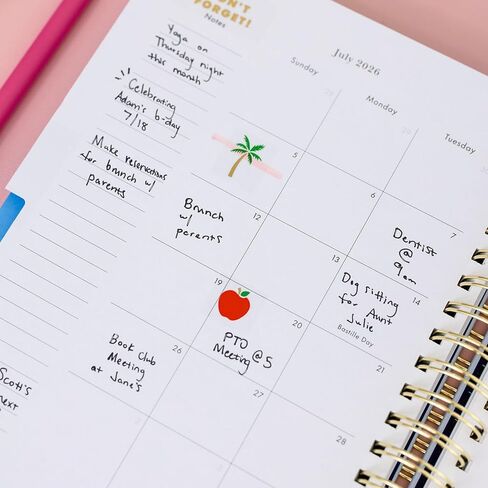 N'T
FORGET!
Notes
Yoga on
Thursday night
this month
Celebrating
Adam's b-day
7/18
Make reservations
for brunch w/
parents
Scott's
next
July 2026
Sunday
Monday
Tuesday
28
29
5
6
7
Dentist
@
9am
12
Brunch
w/
parents
13
14
Dog sitting
for Aunt
Julie
Bastille Day
19
20
PTO
Meeting @5
21
26
Book Club
Meeting
at Jane's
27
28